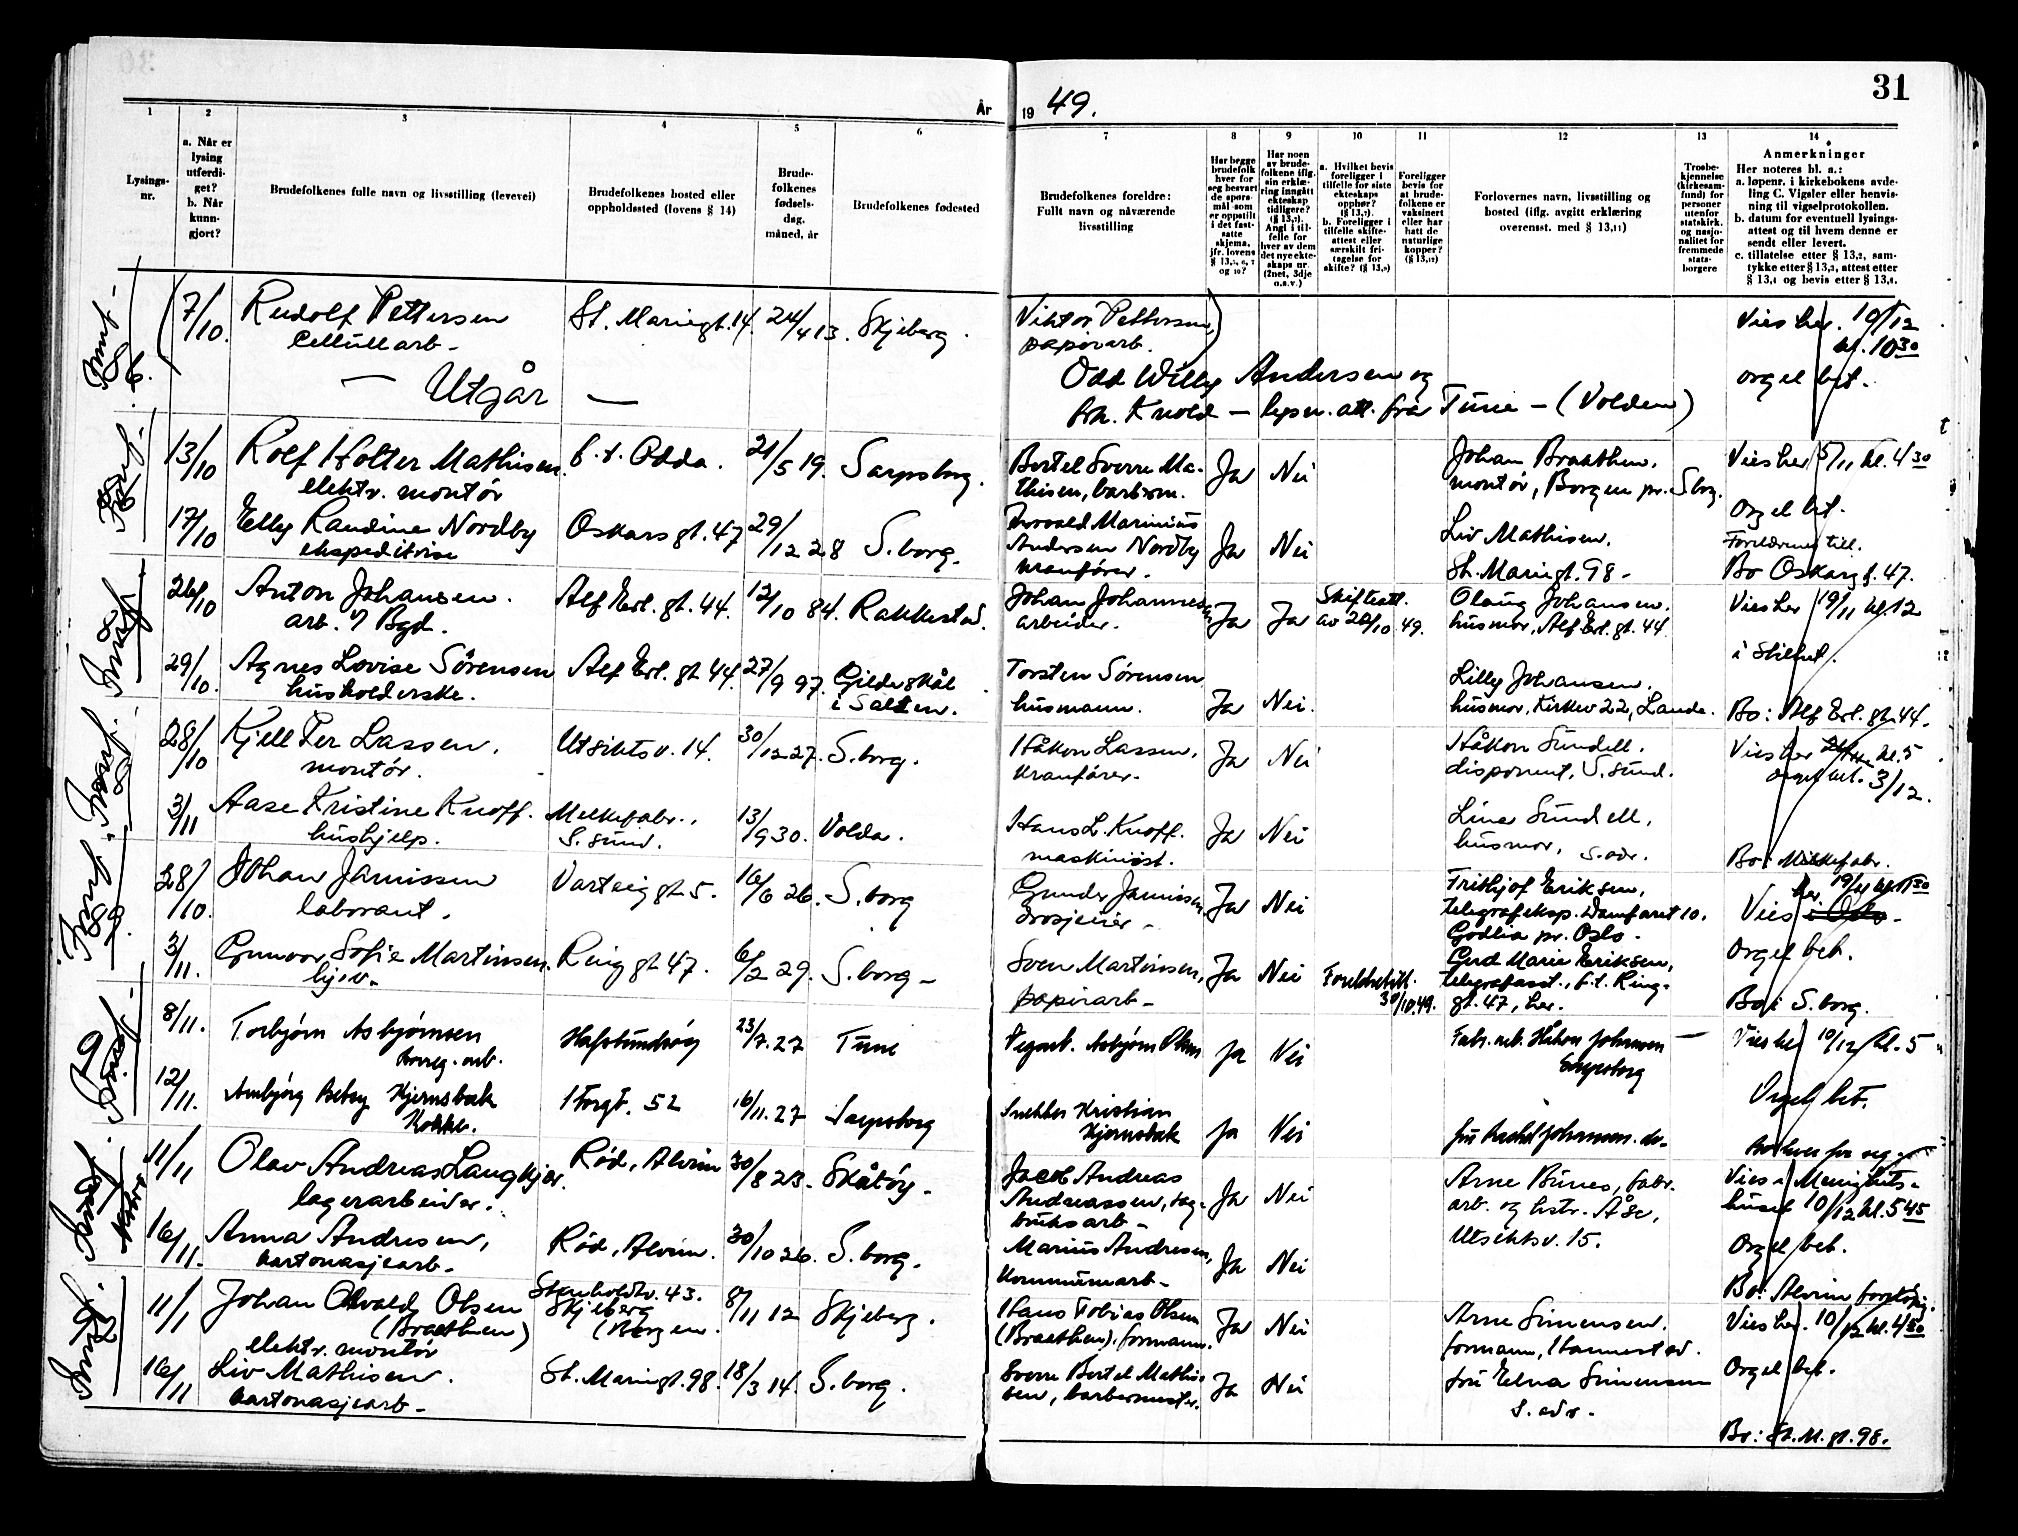 31
År
19 49.
1
2
3
4
5
6
7
8
9
10
11
12
13
14
Lysings-
nr.
a. Når er
lysing
utferdi-
get?
b. Når
kunn-
gjort?
Brudefolkenes fulle navn og livsstilling (levevei)
Brudefolkenes bosted eller
oppholdssted (lovens § 14)
Brude-
folkenes
fødsels-
dag,
måned, år
Brudefolkenes fødested
Brudefolkenes foreldre:
Fullt navn og nåværende
livsstilling
Har begge
brudefolk
hver for
seg besvart
de spørs-
mål som
er oppstilt
i det fast-
satte
skjema,
jfr. lovens
Har noen
av brude-
folkene iflg.
sin erklæ-
ring inngått
ekteskap
tidligere?
(§ 13,7).
Angi i til-
felle for
hver av dem
det nye ekte-
skaps nr.
(2net, 3dje
o.s.v.)
a. Hvilket bevis
foreligger i
tilfelle for siste
ekteskaps
opphør?
(§ 13,7).
b. Foreligger i
tilfelle skifte-
attest eller
særskilt fri-
tagelse for
skifte? (§ 13,9)
Foreligger
bevis for
at brude-
folkene er
vaksinert
eller har
hatt de
naturlige
kopper?
(§ 13,12)
Forlovernes navn, livsstilling og
bosted (iflg. avgitt erklæring
overensst. med § 13,11)
Trosbe-
kjennelse
(kirkesam-
fund) for
personer
utenfor
statskirk.
og nasjo-
nalitet for
fremmede
stats-
borgere
Anmerkninger
Her noteres bl. a.:
a. løpenr. i kirkebokens avde-
ling C. Vigsler eller henvis-
ning til vigselprotokollen.
b. datum for eventuell lysings-
attest og til hvem denne er
sendt eller levert.
c. tillatelse etter § 13,2, sam-
tykke etter § 13,3, attest etter
§ 13,4 og bevis etter § 13,6.
7/10. Rudolf Pettersen St. Mariegt. 14. 24/4 13. Skjeberg. Viktor Pettersen, Vies her. 10/12
Cellull arb- papirarb. kl. 10 30
orgel bet.
— Utgår — Odd Willy Andersen og
frk. Knold — lysn. att. fra Tune — (Volden)
13/10 Rolf Holter Mathisen. f. t. Odda. 21/5 19. Sarpsborg. Bertel Sverre Ma- Ja Nei Johan Braathen. Vies her 5/11 kl. 4 30
elektr. montør thisen, barberm. montør, Borgen pr. S borg. Orgel bet.
17/10 Elly Randine Nordby Oskarsgt. 47 29/12 28 S. borg. Torvald Marinius Ja Nei Liv Mathisen. Foreldrenes till.
ekspeditrise Andersen Nordby St. Mariegt. 98- Bo Oskarsg. 47.
kranfører.
26/10 Anton Johansen. Alf Erl. gt. 44. 12/10 84. Rakkestad. Johan Johannesen Ja Ja Skifteatt. Olaug Johansen. Vies her 19/11 kl. 12
arb. v/ Bgd. arbeider. av 20/10 49. husmor, Alf Erl. gt. 44. i stilhet.
29/10. Agnes Lovise Sørensen Alf Erl. gt 44. 27/9 97. Gildeskål Torsten Sørensen Ja Nei. Lilly Johansen.
husholderske. i Salten. husmann. husmor, Kirkev 22, Lande. Bo: Alf Erl. gt. 44.
28/10 Kjell Per Lassen. Utsiktsv. 14. 30/12 27. S. borg. Håkon Lassen. Ja Nei Håkon Sundell. Vies her kl. 5
montør. kranfører. disponent, S. sund. orgel bet. 3/12.
3/11 Aase Kristine Knoff. Melkefabr., 13/9 30. Volda. Hans L. Knoff. Ja Nei Lina Sundell,
hushjelp. S. sund. maskinist. husmor, s. adr. Bo: Melkefabr.
28/10. Johan Jamissen Varteiggt. 5. 16/6 26. S. borg Gunder Jamissen Ja Nei Frithjof Eriksen, her 19/11 kl. 1130
laborant. drosjeeier- telegrafeksp. Damfaret 10. Vies i Oslo.
Godlia pr. Oslo- Orgel bet.
3/11. Gunvor Sofie Martinsen. Ringgt 47. 6/2 29. S. borg- Sven Martinsen, Ja Nei Foreldretill. Gerd Marie Eriksen,
hjv- papirarb- 30/10 49. telegrafasst., f.t. Ring-
gt. 47, her. Bo: S. borg.
8/11. Torbjørn Asbjørnsen Hafslundsøy 23/7. 27 Tune Vegarb. Asbjørn Olsen ja Nei Fabr. arb. Håkon Johansen — Vies her 10/12 kl. 5
Borreg. arb. Sarpsborg
12/11. Annbjørg Betsy Kjernsbæk Storgt. 52 16/11. 27 Sarpsborg Snekker Kristian ja Nei fru Rachel Johansen. do- Orgel bet.
Kokke. Kjernsbæk bor hver for seg
11/11 Olav Andreas Langkjær. Rød, Alvim 30/8 23. Skåtøy- Jacob Andreas Ja Nei Arne Bünes, fabr. Vies i Menighets-
lagerarbeider. Andreassen, sag- arb. og hstr. Åse, huset 10/12 kl. 5 45
bruksarb- Utsiktsv. 15. Orgel bet.
16/11. Anna Andresen, Rød, Alvim. 30/10 26. S. borg. Marius Andresen, Ja Nei
kartonasjearb- Kommunearb- Bo: Alvim foreløpig.
11/1 Johan Osvald Olsen Stenholdtv. 43. 8/11 12 Skjeberg. Hans Tobias Olsen Ja Nei Arne Simensen. Vies her. 10/12 kl. 4 30
(Braathen) Skjeberg (Braathen). formann. formann, Hannestad. Orgel bet.
elektr. montør (Borgen.
16/11 Liv Mathisen. St. Mariegt. 98. 18/3 14. S. borg. Sverre Bertel Mathi- Ja Nei fru Elna Simensen
kartonasjearb- sen, barbermester. s. adr. Bo: St. M. gt. 98.